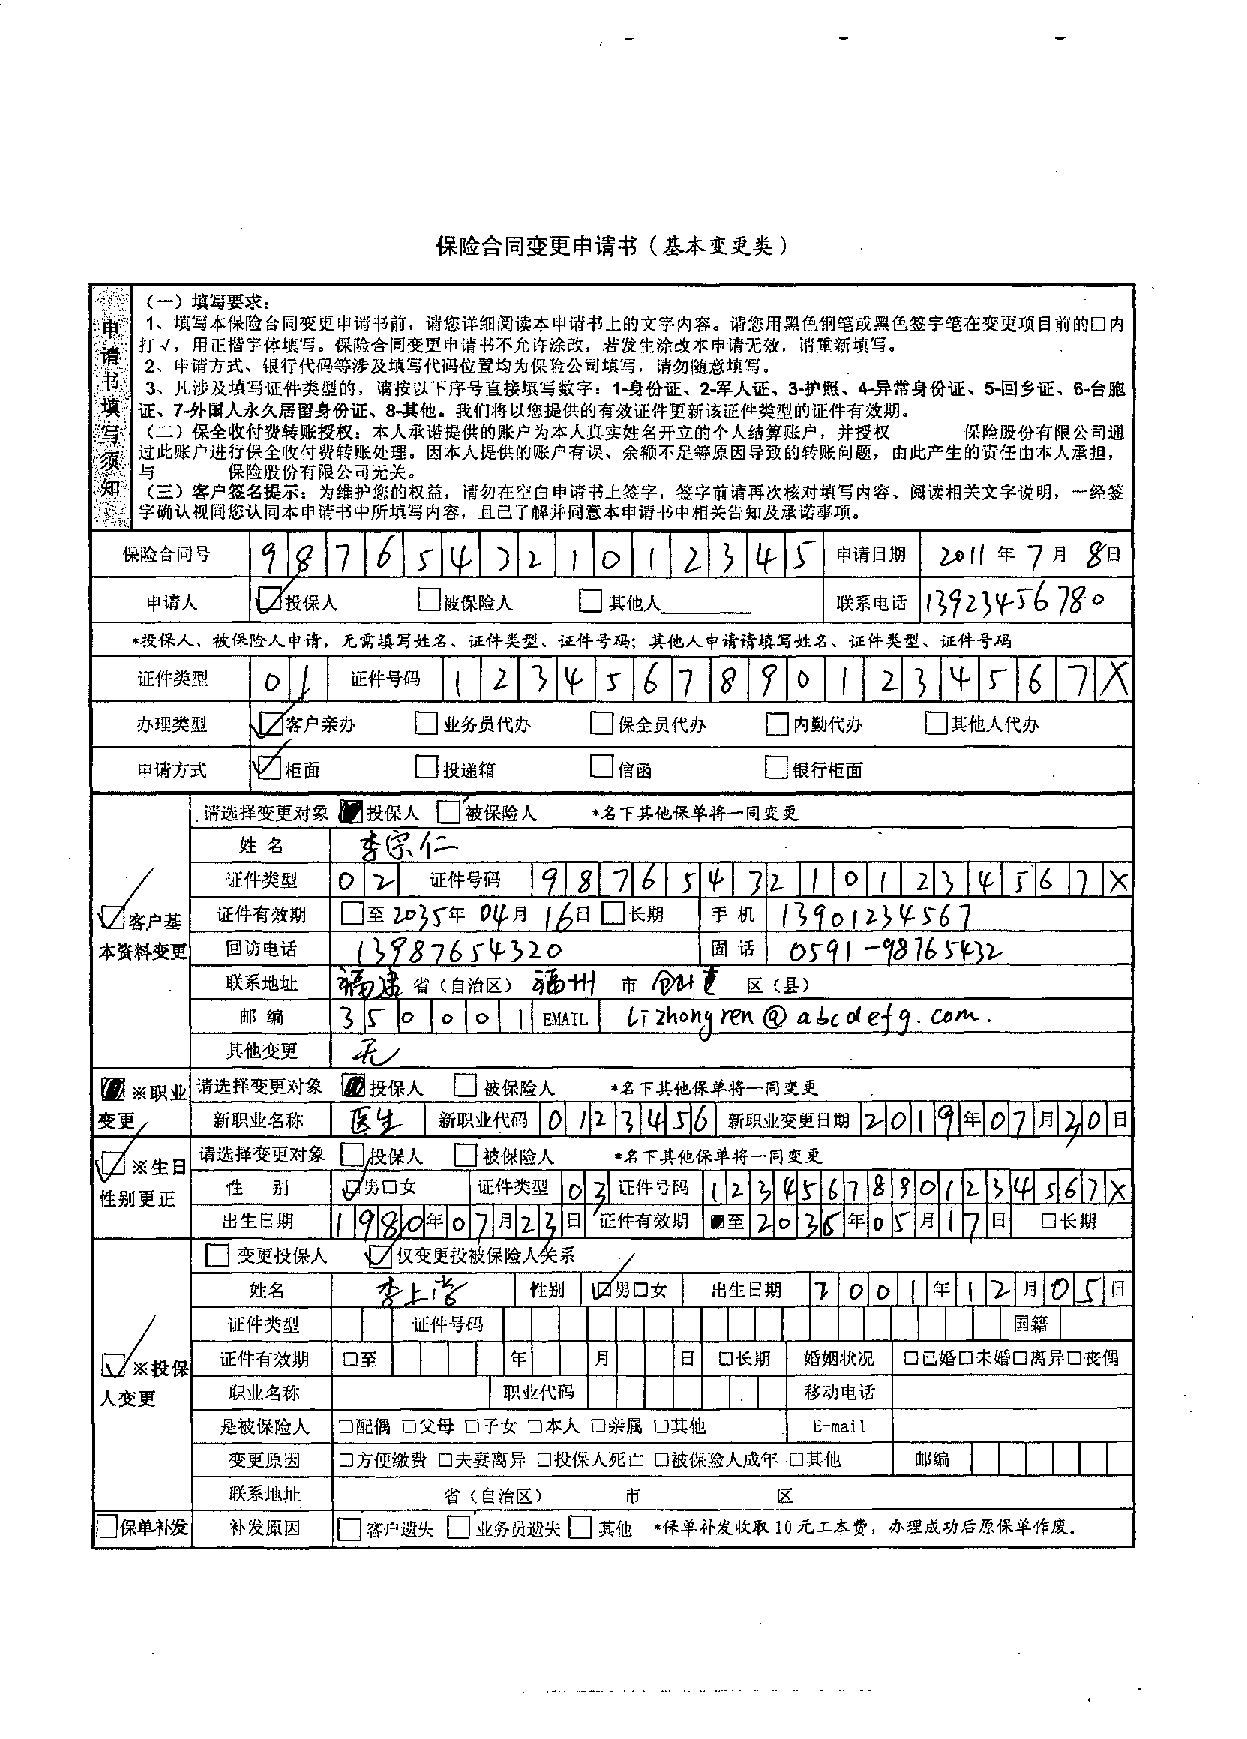 保险合同变更申请书（基本变更类）
申请书填写须知
（一）填写要求：
1、填写本保险合同变更申请书前，请您详细阅读本申请书上的文字内容。请您用黑色钢笔或黑色签字笔在变更项目前的□内
打√，用正楷字体填写。保险合同变更申请书不允许涂改，若发生涂改本申请无效，请重新填写。
2、申请方式、银行代码等涉及填写代码位置均为保险公司填写，请勿随意填写。
3、凡涉及填写证件类型的，请按以下序号直接填写数字：1-身份证、2-军人证、3-护照、4-异常身份证、5-回乡证、6-台胞
证、7-外国人永久居留身份证、8-其他。我们将以您提供的有效证件更新该证件类型的证件有效期。
（二）保全收付费转账授权：本人承诺提供的账户为本人真实姓名开立的个人结算账户，并授权 保险股份有限公司通
过此账户进行保全收付费转账处理。因本人提供的账户有误、余额不足等原因导致的转账问题，由此产生的责任由本人承担，
与 保险股份有限公司无关。
（三）客户签名提示：为维护您的权益，请勿在空白申请书上签字，签字前请再次核对填写内容、阅读相关文字说明，一经签
字确认视同您认同本申请书中所填写内容，且已了解并同意本申请书中相关告知及承诺事项。
保险合同号 987654321012345 申请日期 2011年7月8日
申请人 ☑投保人 □被保险人 □其他人______ 联系电话 13923456780
*投保人、被保险人申请，无需填写姓名、证件类型、证件号码；其他人申请请填写姓名、证件类型、证件号码
证件类型 01 证件号码 12345678901234567X
办理类型 ☑客户亲办 □业务员代办 □保全员代办 □内勤代办 □其他人代办
申请方式 ☑柜面 □投递箱 □信函 □银行柜面
☑客户基本资料变更
请选择变更对象 ■投保人 □被保险人 *名下其他保单将一同变更
姓名 李宗仁
证件类型 02 证件号码 98765432101234567X
证件有效期 □至2035年04月16日 □长期 手机 13901234567
回访电话 13987654320 固话 0591-98765432
联系地址 福建 省（自治区） 福州 市 仓山 区（县）
邮编 350001 EMAIL lizhongren@abcdefg.com.
其他变更 无
■※职业变更
请选择变更对象 ■投保人 □被保险人 *名下其他保单将一同变更
新职业名称 医生 新职业代码 0123456 新职业变更日期 2019年07月20日
☑※生日性别更正
请选择变更对象 □投保人 □被保险人 *名下其他保单将一同变更
性别 ☑男□女 证件类型 03 证件号码 12345678901234567X
出生日期 1980年07月23日 证件有效期 ■至2036年05月17日 □长期
☑※投保人变更
□变更投保人 ☑仅变更投被保险人关系
姓名 李上尚 性别 ☑男□女 出生日期 2001年12月05日
证件类型 证件号码 国籍
证件有效期 □至 年 月 日 □长期 婚姻状况 □已婚□未婚□离异□丧偶
职业名称 职业代码 移动电话
是被保险人 □配偶 □父母 □子女 □本人 □亲属 □其他 E-mail
变更原因 □方便缴费 □夫妻离异 □投保人死亡 □被保险人成年 □其他 邮编
联系地址 省（自治区） 市 区
□保单补发 补发原因 □客户遗失 □业务员遗失 □其他 *保单补发收取10元工本费，办理成功后原保单作废。